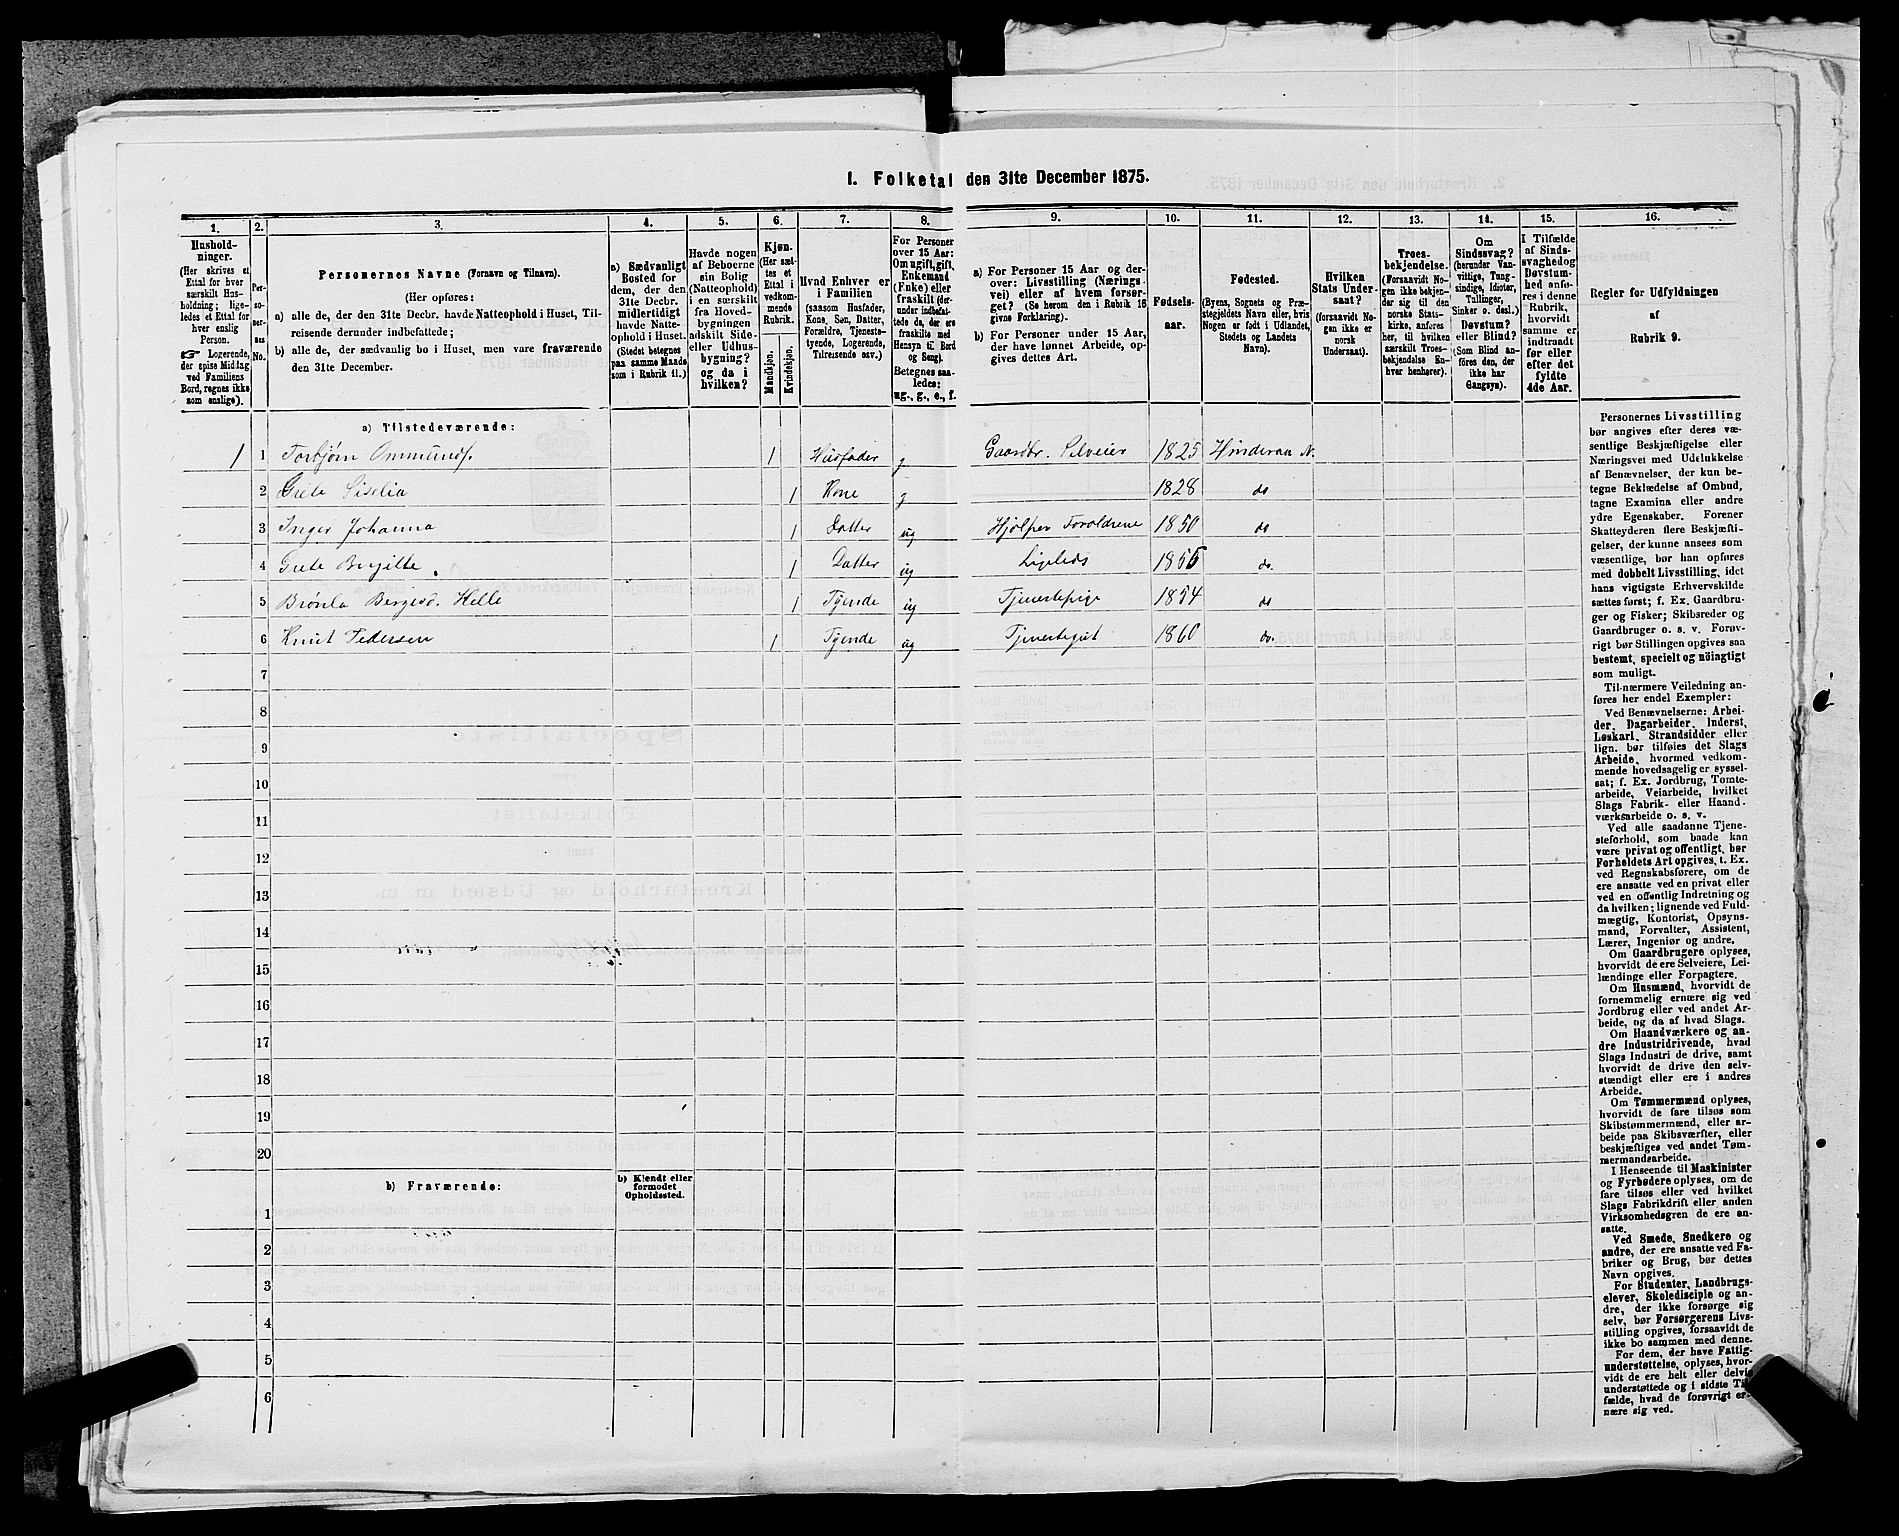 I. Folketal den 31te December 1875.
1. 2. 3. 4. 5. 6. 7. 8. 9. 10. 11. 12. 13. 14. 15. 16.
Hushold-
ninger.
(Her skrives et
Ettal for hver
særskilt Hus-
holdning; lige-
ledes et Ettal for
hver enslig
Person.
☞ Logerende,
der spise Middag
ved Familiens
Bord, regnes ikke
som enslige).
Per-
so-
ner-
nes
No.
Personernes Navne (Fornavn og Tilnavn).
(Her opføres:
a) alle de, der den 31te Decbr. havde Natteophold i Huset, Til-
reisende derunder indbefattede;
b) alle de, der sædvanlig bo i Huset, men vare fraværende
den 31te December.
a) Sædvanligt
Bosted for
dem, der den
31te Decbr.
midlertidigt
havde Natte-
ophold i Huset.
(Stedet betegnes
paa samme Maade
som i Rubrik 11.)
Havde nogen
af Beboerne
sin Bolig
(Natteophold)
i en særskilt
fra Hoved-
bygningen
adskilt Side-
eller Udhus-
bygning?
og da i
hvilken?
Kjøn.
(Her sæt-
tes et
Ettal i
vedkom-
mende
Rubrik.)
Mandkjøn.
Kvindekjøn.
Hvad Enhver er
i Familien
(saasom Husfader,
Kone, Søn, Datter,
Forældre, Tjeneste-
tyende, Logerende,
Tilreisende osv.)
For Personer
over 15 Aar:
Om ugift, gift,
Enkemand
(Enke) eller
fraskilt (der-
under indbefat-
tede de, der ere
fraskilte med
Hensyn til Bord
og Seng).
Betegnes saa-
ledes:
ug., g., e., f.
a) For Personer 15 Aar og der-
over: Livsstilling (Nærings-
vei) eller af hvem forsør-
get? (Se herom den i Rubrik 16
givne Forklaring).
b) For Personer under 15 Aar,
der have lønnet Arbeide, op-
gives dettes Art.
Fødsels-
aar.
Fødested.
(Byens, Sognets og Præ-
stegjeldets Navn eller, hvis
Nogen er født i Udlandet,
Stedets og Landets
Navn).
Hvilken
Stats Under-
saat?
(forsaavidt No-
gen ikke er
norsk
Undersaat).
Troes-
bekjendelse.
(Forsaavidt No-
gen ikke bekjen-
der sig til den
norske Stats-
kirke, anføres
her, til hvilken
særskilt Troes-
bekjendelse En-
hver henhører).
Om
Sindssvag?
(herunder Van-
vittige, Tung-
sindige, Idioter,
Tullinger,
Sinker o. desl.)
Døvstum?
eller Blind?
(Som Blind an-
føres den, der
ikke har
Gangsyn).
I Tilfælde
af Sinds-
svaghed og
Døvstum-
hed anfø-
res i denne
Rubrik,
hvorvidt
samme er
indtraadt
før eller
efter det
fyldte
4de Aar.
Regler for Udfyldningen
af
Rubrik 9.
a) Tilstedeværende:
1 1 Torbjørn Ommunds. 1 Husfader g Gaardbr. Selveier 1825 Hinderaa N.
2 Grete Siselia 1 Kone g 1828 do
3 Inger Johanna 1 Datter ug Hjælper Foraldrene 1850 do
4 Grete Birgitte 1 Datter ug Ligeleds 1856 do.
5 Brønla Bergesd. Helle 1 Tyende ug Tjenestepige 1854 do
6 Knut Pedersen 1 Tyende ug Tjenestegut 1860 do.
7
8
9
10
11
12
13
14
15
16
17
18
19
20
b) Fraværende:
b) Kjendt eller
formodet
Opholdssted.
1
2
3
4
5
6
Personernes Livsstilling
bør angives efter deres væ-
sentlige Beskjæftigelse eller
Næringsvei med Udelukkelse
af Benævnelser, der kun be-
tegne Beklædelse af Ombud,
tagne Examina eller andre
ydre Egenskaber. Forener
Skatteyderen flere Beskjæfti-
gelser, der kunne ansees som
væsentlige, bør han opføres
med dobbelt Livsstilling, idet
hans vigtigste Erhvervskilde
sættes først; f. Ex. Gaardbru-
ger og Fisker; Skibsreder og
Gaardbruger o. s. v. Forøv-
rigt bør Stillingen opgives saa
bestemt, specielt og nøiagtigt
som muligt.
Til nærmere Veiledning an-
føres her endel Exempler:
Ved Benævnelserne: Arbei-
der, Dagarbeider, Inderst,
Løskarl, Strandsidder eller
lign. bør tilføies det Slags
Arbeide, hvormed vedkom-
mende hovedsagelig er syssel-
sat; f. Ex. Jordbrug, Tomte-
arbeide, Veiarbeide, hvilket
Slags Fabrik- eller Haand-
værksarbeide o. s. v.
Ved alle saadanne Tjene-
steforhold, som baade kan
være privat og offentligt, bør
Forholdets Art opgives, t. Ex.
ved Regnskabsførere, om de
ere ansatte ved en privat eller
ved en offentlig Indretning og
da hvilken; lignende ved Fuld-
mægtig, Kontorist, Opsyns-
mand, Forvalter, Assistent,
Lærer, Ingeniør og andre.
Om Gaardbrugere oplyses,
hvorvidt de ere Selveiere, Lei-
lændinge eller Forpagtere.
Om Husmænd, hvorvidt de
fornemmelig ernære sig ved
Jordbrug eller ved andet Ar-
beide, og da af hvad Slags.
Om Haandværkere og an-
dre Industridrivende, hvad
Slags Industri de drive, samt
hvorvidt de drive den selv-
stændigt eller ere i andres
Arbeide.
Om Tømmermænd oplyses,
hvorvidt de fare tilsøs som
Skibstømmermænd, eller ar-
beide paa Skibsværfter, eller
beskjæftiges ved andet Tøm-
mermandsarbeide.
I Henseende til Maskinister
og Fyrbødere oplyses, om de
fare tilsøs eller ved hvilket
Slags Fabrikdrift eller anden
Virksomhedsgren de ere an-
satte.
Ved Smede, Snedkere og
andre, der ere ansatte ved Fa-
briker og Brug, bør dettes
Navn opgives.
For Studenter, Landbrugs-
elever, Skoledisciple og an-
dre, der ikke forsørge sig
selv, bør Forsørgerens Livs-
stilling opgives, forsaavidt de
ikke bo sammen med denne.
For dem, der have Fattig-
understøttelse, oplyses, hvor-
vidt de ere helt eller delvis
understøttede og i sidste Til-
fælde, hvad de forøvrigt er-
nære sig ved.